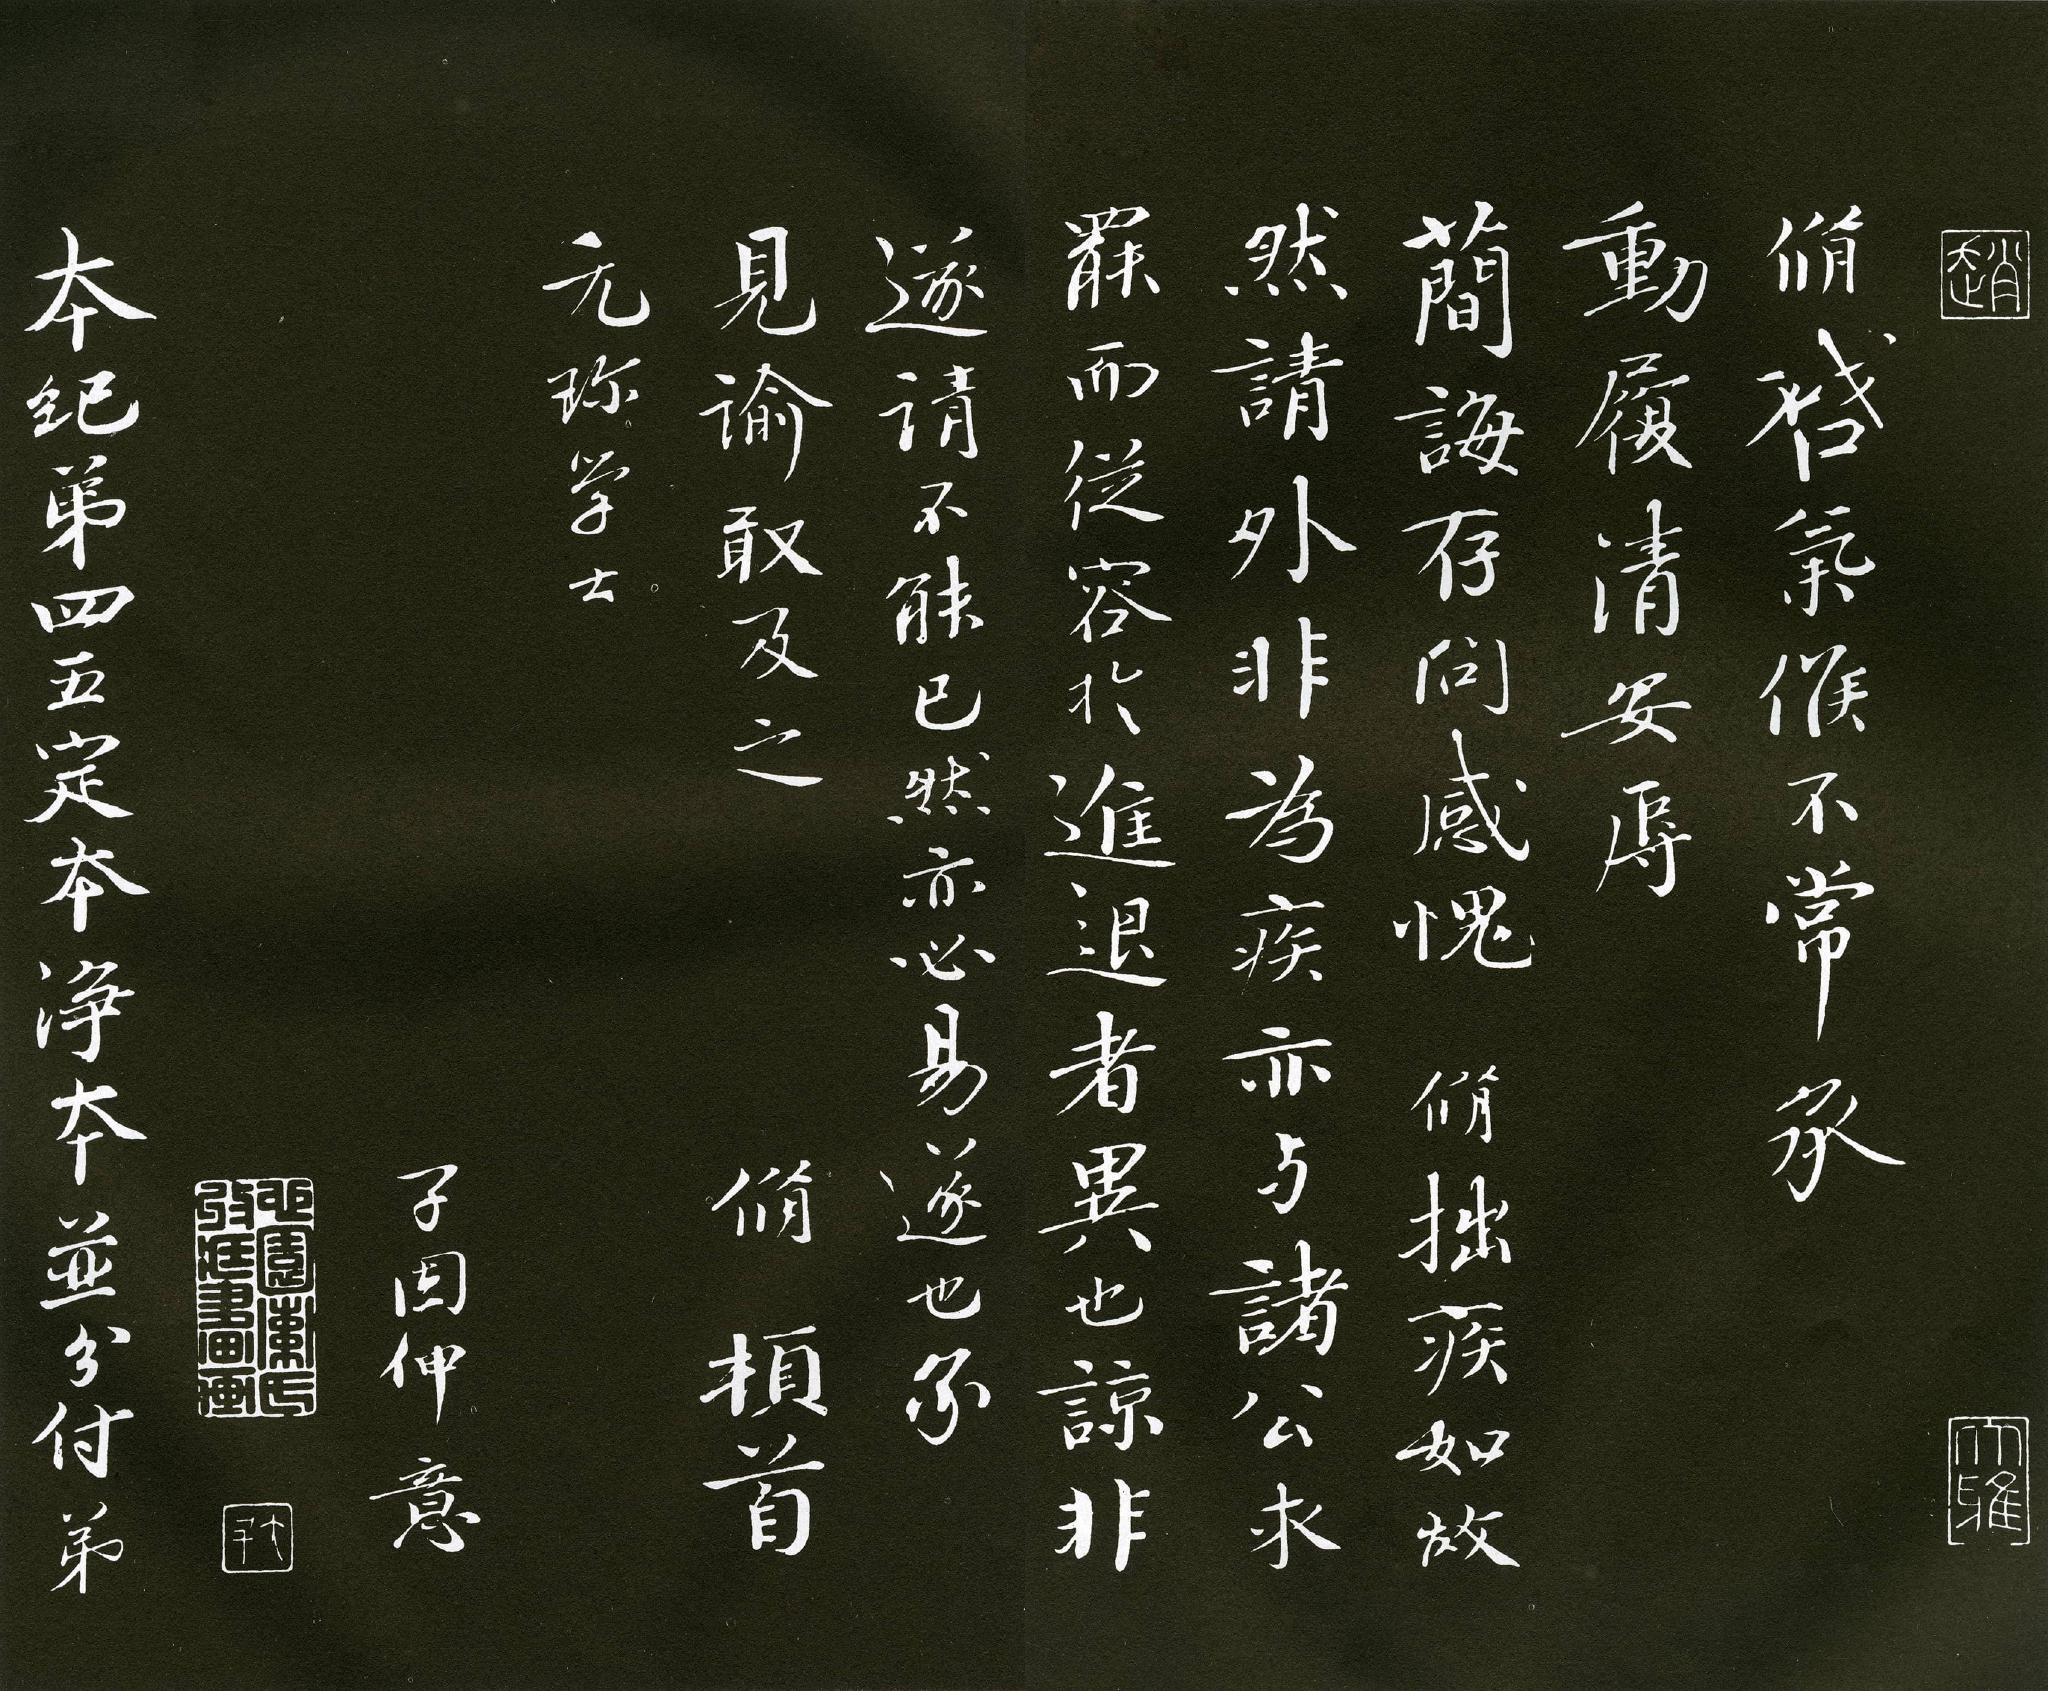 趙
大雅
脩啓氣候不常承
動履清安辱
簡誨存問感愧 脩拙疾如故
然請外非為疾亦与諸公求
罷而從容於進退者異也諒非
遂請不能已然亦必易遂也承
見諭敢及之 脩 頓首
元珍学士
子因仲意
本紀弟四五定本淨本並分付弟